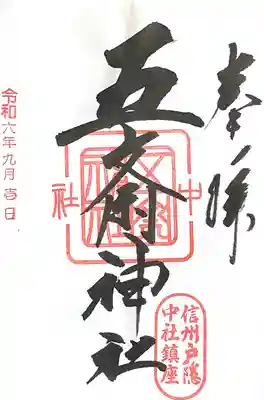 奉拝
五斎神社
中社
信州戸隠
中社鎮座
令和六年九月吉日